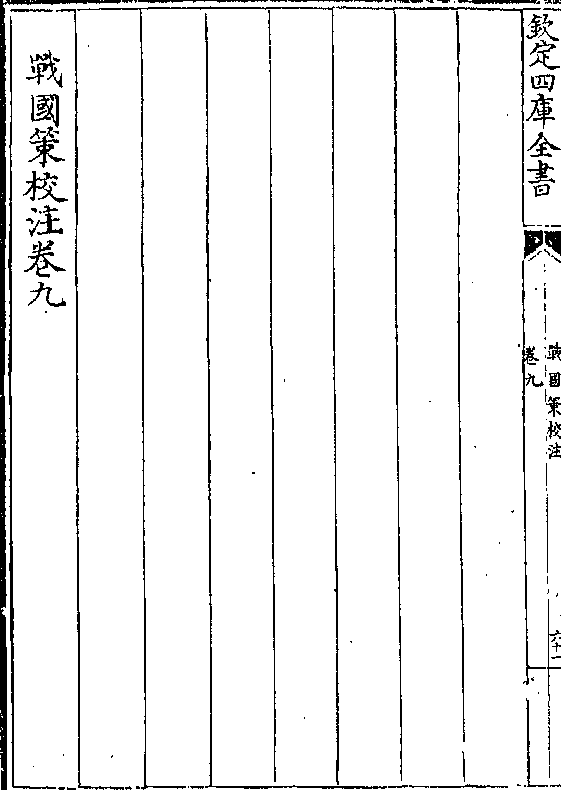 欽定四庫全書
戰國策校注
卷九
六十一
戰國策校注卷九